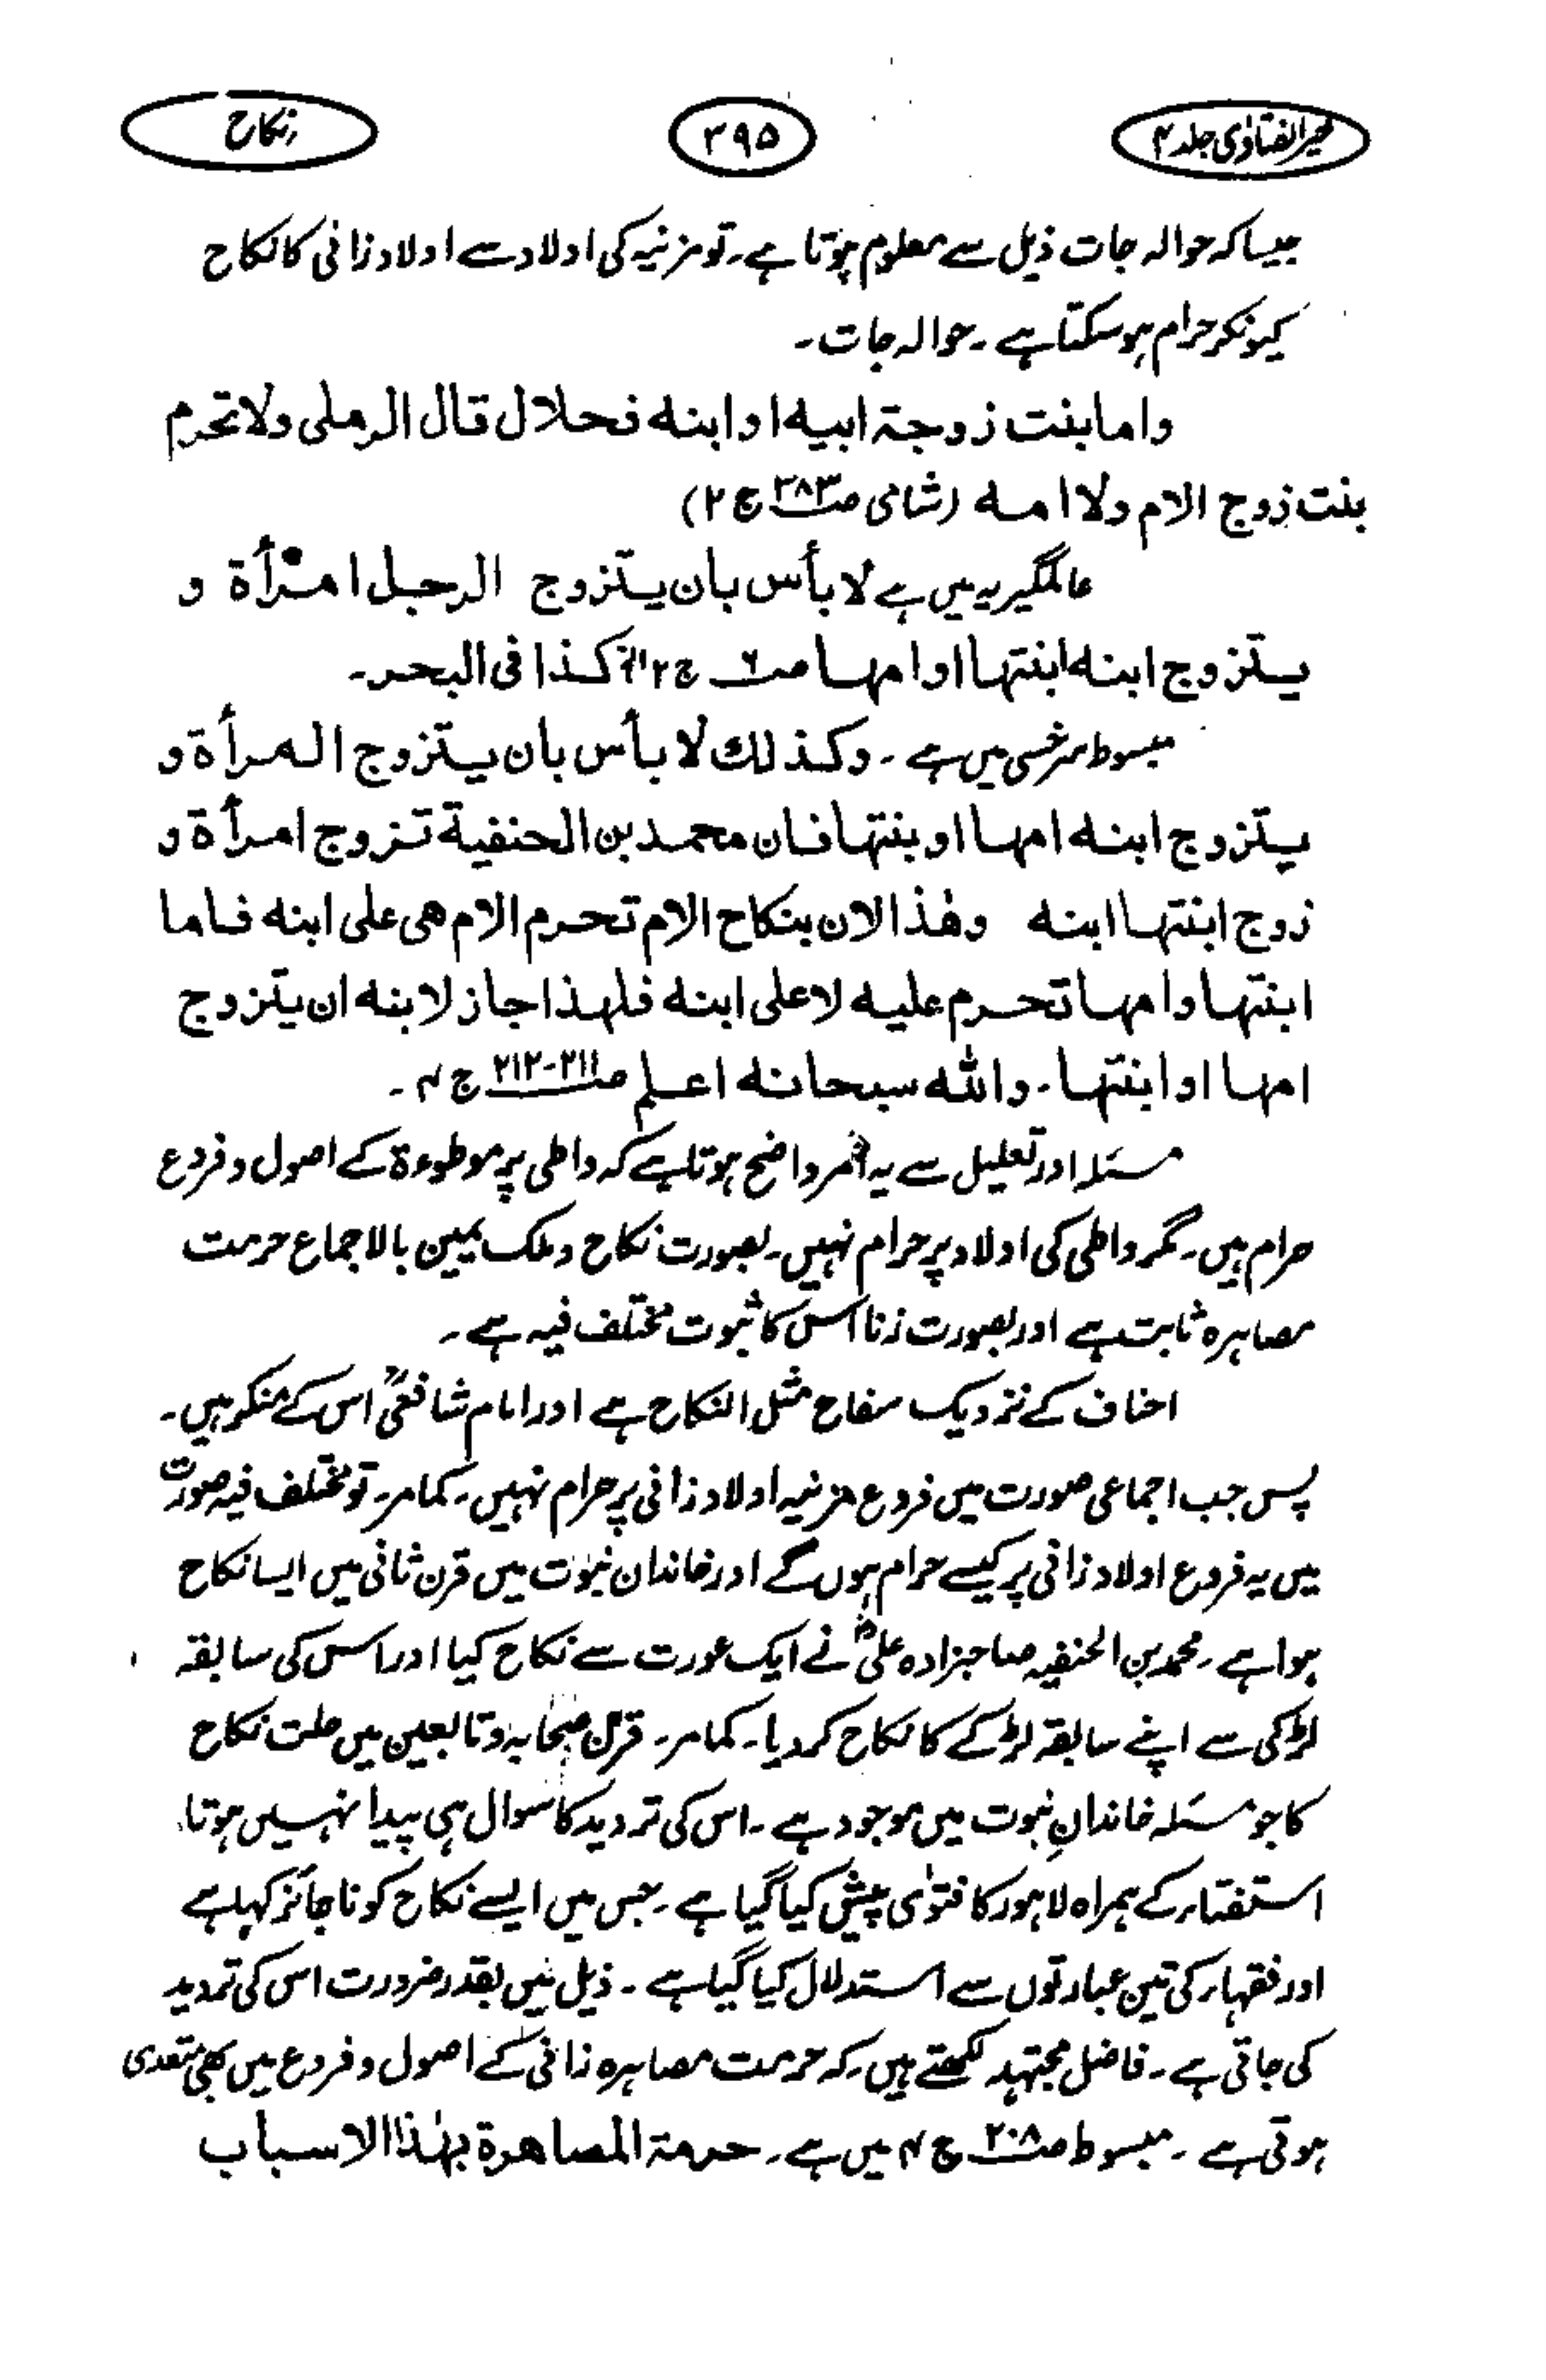 خیر الفتاوی جلد ۴
۳۹۵
نکاح
جیسا کہ حوالہ جات ذیل سے معلوم ہوتا ہے۔ تو مزنیہ کی اولاد سے اولاد زانی کا نکاح
کیونکر حرام ہو سکتا ہے۔ حوالہ جات۔
واما بنت زوجة ابیه او ابنه فحلال قال الرملی ولا تحرم
بنت زوج الام ولا امه (شامی ص۳۸۳ ج۲)
عالمگیریہ میں ہے لا بأس بان یتزوج الرجل امرأة و
یتزوج ابنه ابنتها او امها ص۶ ج۲ کذا فی البحر۔
مبسوط سرخسی میں ہے۔ وکذلك لا بأس بان یتزوج المرأة و
یتزوج ابنه امها او بنتها فان محمد بن الحنفیة تزوج امرأة و
زوج ابنتها ابنه وهٰذا لان بنکاح الام تحرم الام هی علی ابنه فاما
ابنتها وامها تحرم علیه لا علی ابنه فلهذا جاز لابنه ان یتزوج
امها او ابنتها۔ والله سبحانه اعلم ص۲۱۱-۲۱۲ ج۴۔
مسئلہ اور تعلیل سے یہ امر واضح ہوتا ہے کہ واطی پر موطوءة کے اصول و فروع
حرام ہیں۔ مگر واطی کی اولاد پر حرام نہیں۔ بصورت نکاح و ملک یمین بالاجماع حرمت
مصاہرہ ثابت ہے اور بصورت زنا اس کا ثبوت مختلف فیہ ہے۔
احناف کے نزدیک سفاح مثل النکاح ہے اور امام شافعیؒ اس کے منکر ہیں۔
پس جب اجماعی صورت میں فروع مزنیہ اولاد زانی پر حرام نہیں۔ کما مر۔ تو مختلف فیہ صورت
میں یہ فروع اولاد زانی پر کیسے حرام ہوں گے اور خاندان نبوت میں قرن ثانی میں ایسا نکاح
ہوا ہے۔ محمد بن الحنفیہ صاحبزادہ علیؓ نے ایک عورت سے نکاح کیا اور اس کی سابقہ
لڑکی سے اپنے سابقہ لڑکے کا نکاح کر دیا۔ کما مر۔ قرن صحابہ و تابعین میں حلت نکاح
کا جو مسئلہ خاندانِ نبوت میں موجود ہے۔ اس کی تردید کا سوال ہی پیدا نہیں ہوتا۔
استفتاء کے ہمراہ لاہور کا فتوٰی پیش کیا گیا ہے۔ جس میں ایسے نکاح کو ناجائز کہا ہے
اور فقہاء کی تین عبارتوں سے استدلال کیا گیا ہے۔ ذیل میں بقدر ضرورت اس کی تردید
کی جاتی ہے۔ فاضل مجتہد لکھتے ہیں۔ کہ حرمت مصاہرہ زانی کے اصول و فروع میں بھی متعدی
ہوتی ہے۔ مبسوط ص۲۰۸ ج۴ میں ہے۔ حرمة المصاهرة بهٰذا الاسباب